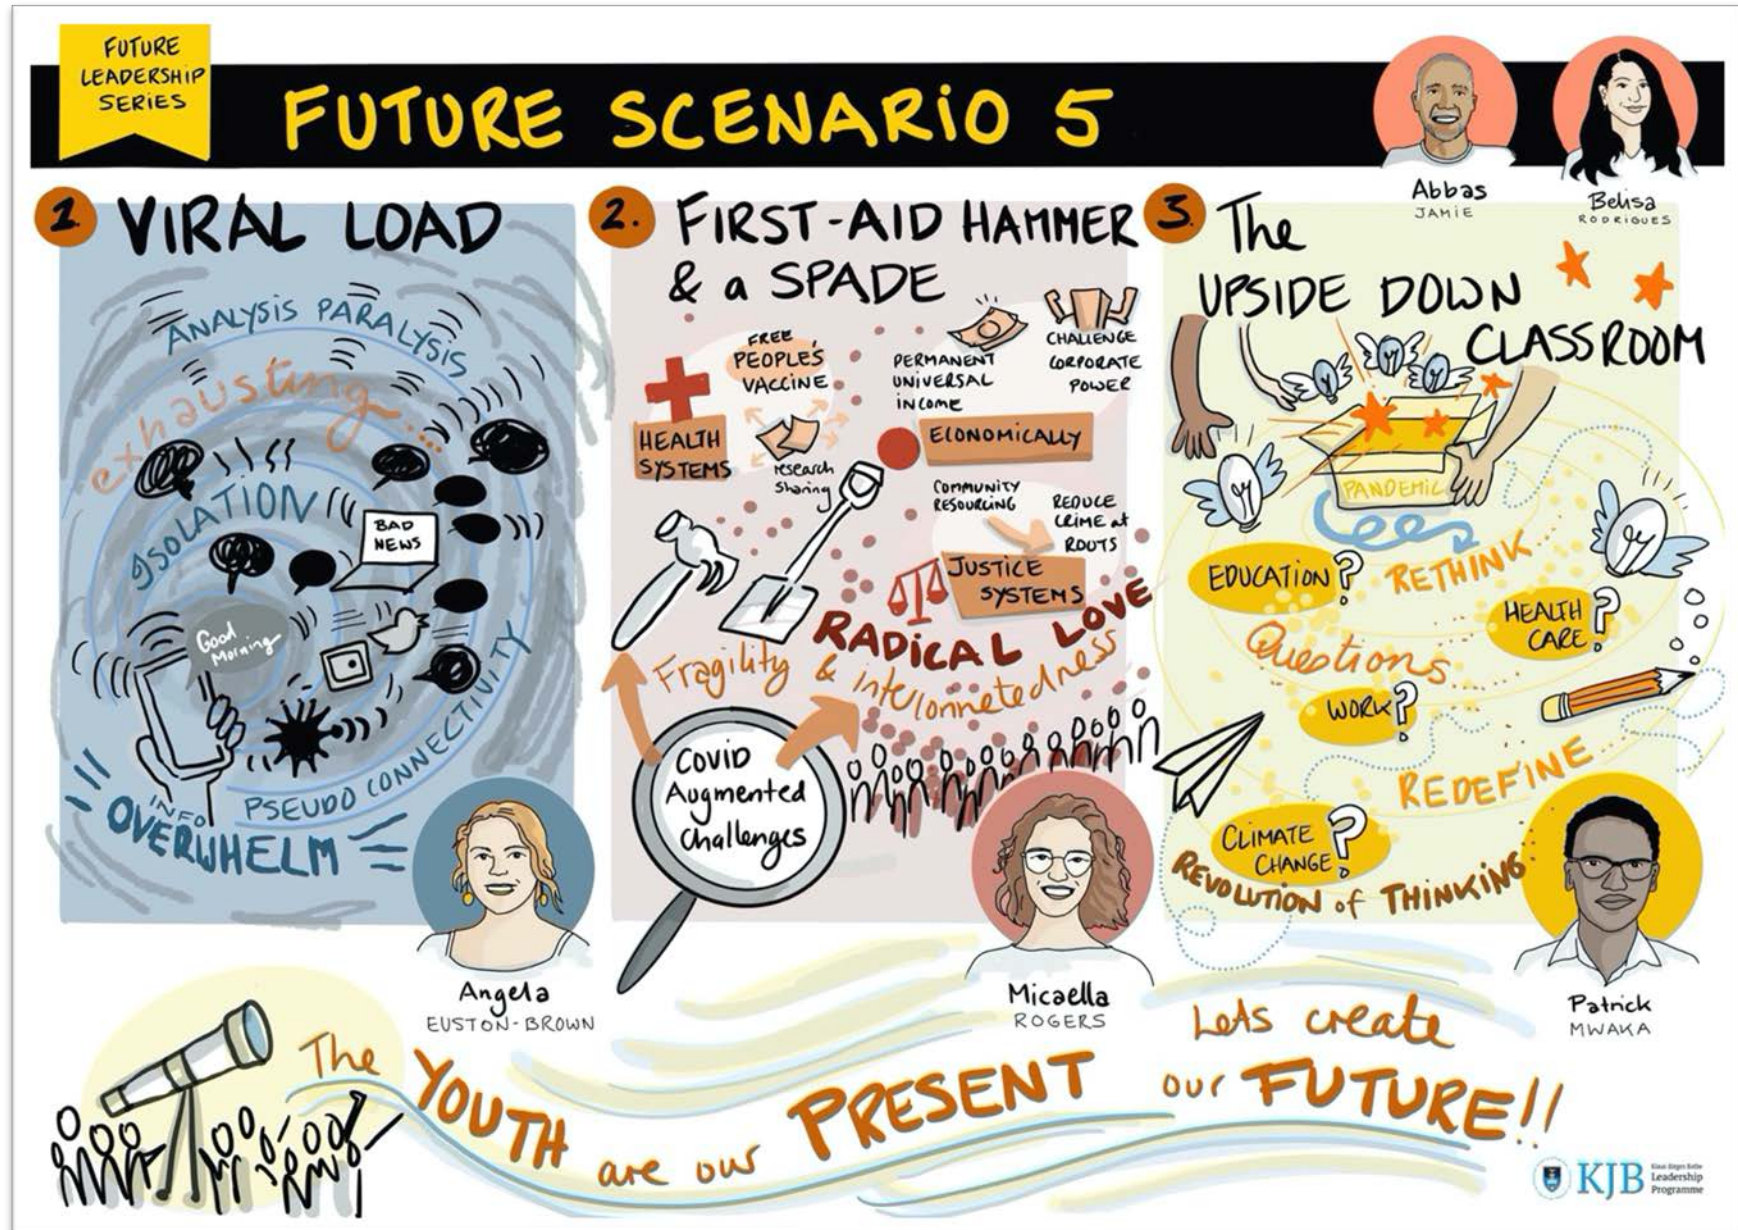 FUTURE
LEADERSHIP
SERIES
FUTURE SCENARIO 5
Abbas
JAMIE
Belisa
RODRIGUES
1. VIRAL LOAD
ANALYSIS PARALYSIS
exhausting....
ISOLATION
BAD
NEWS
Good
Morning
PSEUDO CONNECTIVITY
INFO
OVERWHELM
Angela
EUSTON-BROWN
2. FIRST-AID HAMMER
& a SPADE
FREE
PEOPLE'S
VACCINE
HEALTH
SYSTEMS
research
sharing
PERMANENT
UNIVERSAL
INCOME
CHALLENGE
CORPORATE
POWER
ECONOMICALLY
COMMUNITY
RESOURCING
REDUCE
CRIME at
ROUTS
JUSTICE
SYSTEMS
RADICAL LOVE
Fragility & interconnetedness
Covid
Augmented
Challenges
Micaella
ROGERS
3. The
UPSIDE DOWN
CLASSROOM
PANDEMIC
EDUCATION?
RETHINK...
HEALTH
CARE?
Questions.....
WORK?
REDEFINE...
CLIMATE
CHANGE?
REVOLUTION of THINKING
Patrick
MWAKA
The YOUTH are our PRESENT
Lets create
our FUTURE!!
KJB
Leadership
Programme